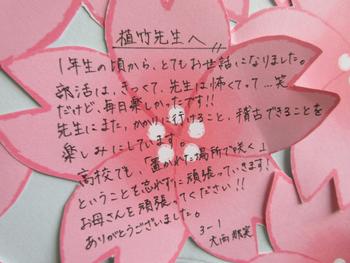 植竹先生へ
1年生の頃から、とてもお世話になりました。
部活は、きつくて、先生は怖くてって…笑
だけど、毎日楽しかったです!!
先生にまた、かかりに行けること、稽古できることを
楽しみにしています。
高校でも、「置かれた場所で咲く」
ということを忘れずに頑張っていきます!
お母さんを頑張ってください!!
ありがとうございました。
3-1